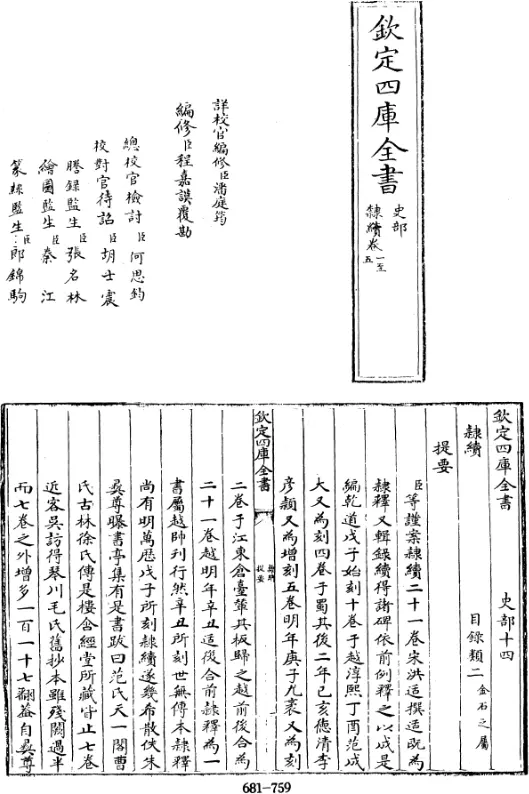 欽定四庫全書
史部
隸續卷一至五
詳校官編修臣潘庭筠
編修臣程嘉謨覆勘
總校官檢討臣何思鈞
校對官待詔臣胡士震
謄錄監生臣張名林
繪圖監生臣秦江
篆隸監生臣郎錦駒
欽定四庫全書 史部十四
隸續 目錄類二金石之屬
提要
臣等謹案隸續二十一卷宋洪适撰适既為
隸釋又輯錄續得諸碑依前例釋之以成是
編乾道戊子始刻十卷于越淳熙丁酉范成
大又為刻四卷于蜀其後二年己亥德清李
彦穎又為增刻五卷明年庚子尤袤又為刻
欽定四庫全書 隸續提要
二卷于江東倉臺輦其板歸之越前後合為
二十一卷越明年辛丑适復合前隸釋為一
書屬越帥刊行然辛丑所刻世無傳本隸釋
尚有明萬歷戊子所刻隸續遂幾希散佚朱
彝尊曝書亭集有是書跋曰范氏天一閣曹
氏古林徐氏傳是樓含經堂所藏皆止七卷
近客吳訪得琴川毛氏舊抄本雖殘闕過半
而七卷之外增多一百一十七翻蓋自彝尊
681-759